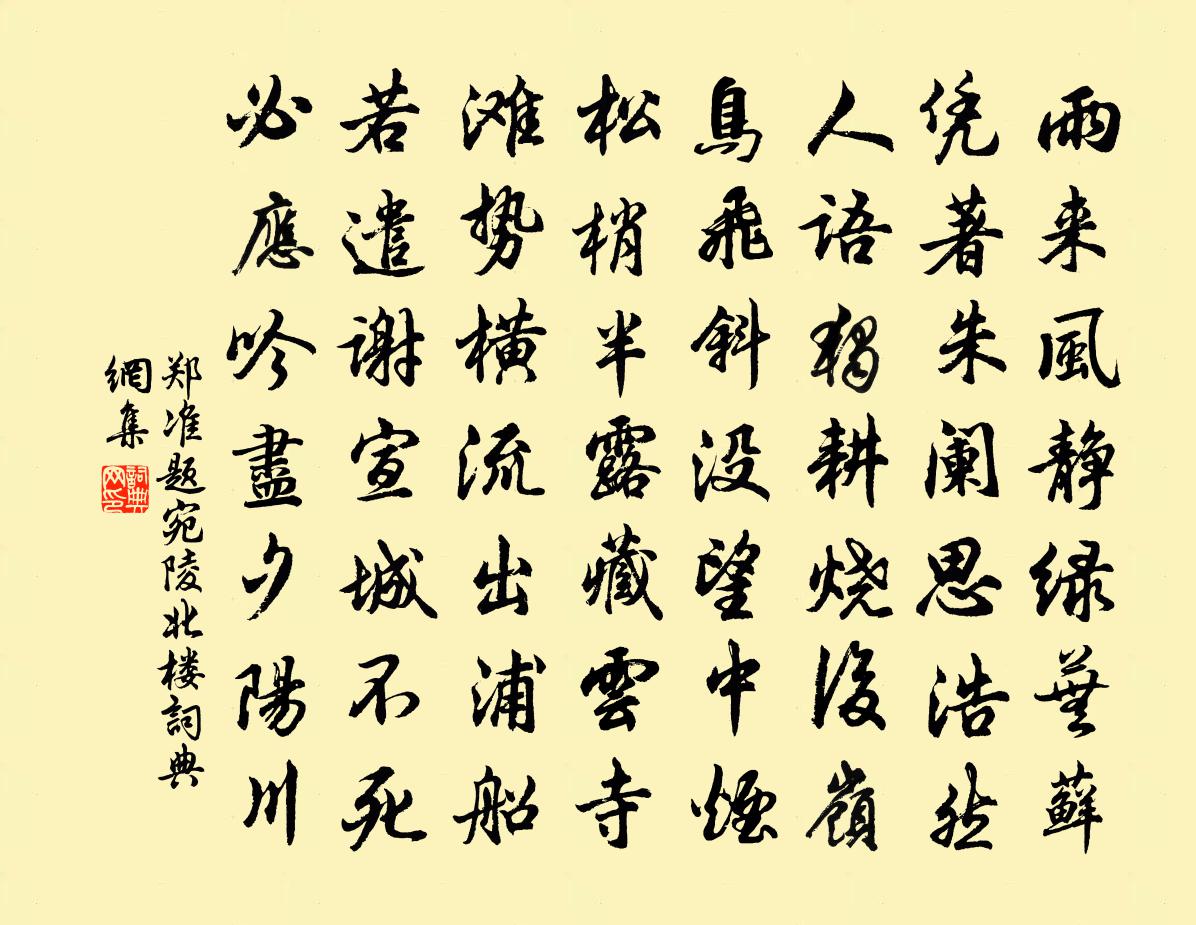 雨来風静绿蕪蘚
凭著朱阑思浩然
人語獨耕烧後嶺
鳥飛斜没望中煙
松梢半露藏雲寺
滩势橫流出浦船
若遣謝宣城不死
必應吟盡夕陽川
郑准题宛陵北楼詞典
網集
詞典
网印